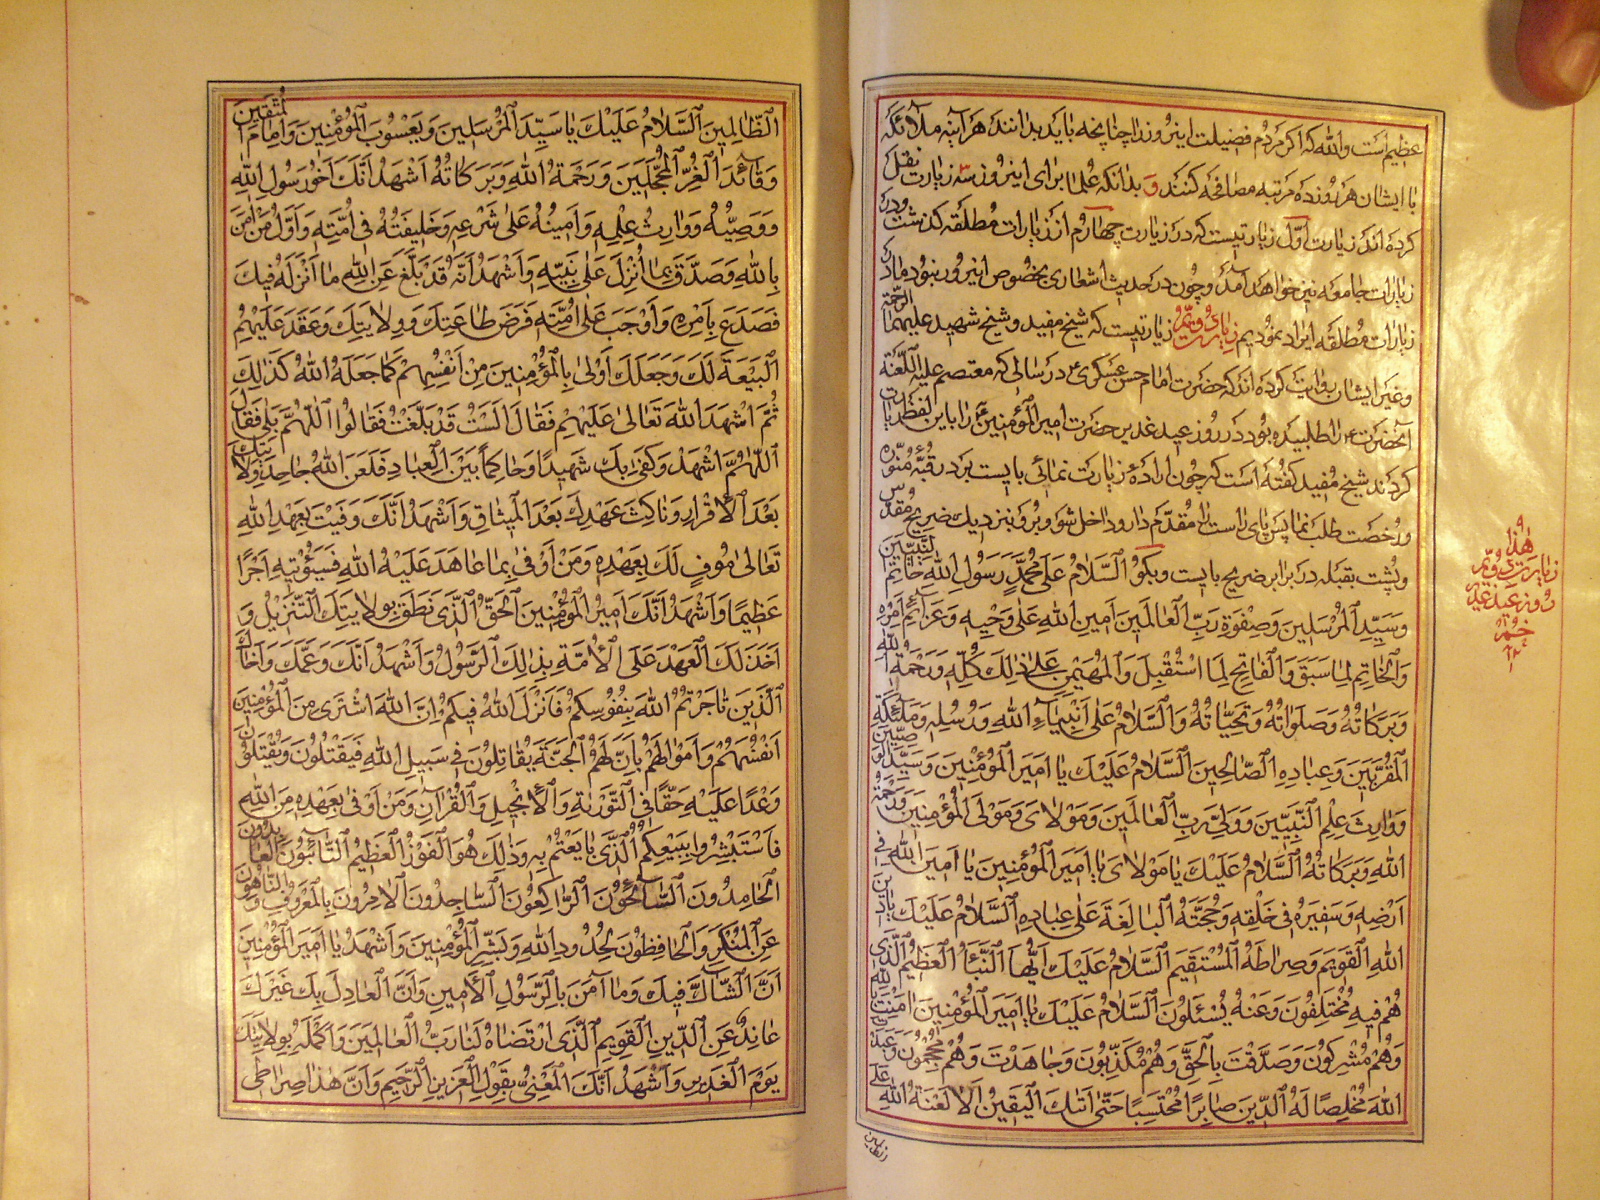 عظیم است والله که اکر مردم فضیلت این روز را چنانچه باید بدانند هر آینه ملائکه
با ایشان هر روز ده مرتبه مصافحه کنند و بدانکه علما برای این روز سه زیارت نقل
کرده اند زیارت اوّل زیارتیست که در زیارت چهارم از زیارات مطلقه کذشت ودر
زیارات جامعه نیز خواهد آمد و چون در حدیث اشعاری بخصوص این روز نبود ما در
زیارات مطلقه ایراد نمودیم زیارت دویّم زیارتیست که شیخ مفید و شیخ شهید علیهما الرحمة
وغیر ایشان روایت کرده اند که حضرت امام حسن عسکری در سالی که معتصم علیه اللّعنة
آنحضرت را طلبیده بود در روز عید غدیر حضرت امیر المؤمنین را باین لفظ زیارت
کردند شیخ مفید کفته است که چون اراده زیارت نمائی بایست بر در قبّه منوّره
ورخصت طلب نما پس پای راست را مقدّم دار و داخل شو و برو نزدیك ضریح مقدس
وپشت بقبله در برابر ضریح بایست وبکو اَلسَّلامُ عَلى مُحَمَّدٍ رَسُولِ اللهِ خاتَمِ النَّبِيّينَ
وَسَيِّدِ الْمُرْسَلينَ وَصِفْوَةِ رَبِّ الْعالَمينَ اَمينِ اللهِ عَلى وَحْيِهِ وَعَزائِمِ اَمْرِهِ
وَالْخاتِمِ لِما سَبَقَ وَالْفاتِحِ لِمَا اسْتُقْبِلَ وَالْمُهَيْمِنِ عَلى ذلِكَ كُلِّهِ وَرَحْمَةُ اللهِ
وَبَرَكاتُهُ وَصَلَواتُهُ وَتَحِيّاتُهُ وَالسَّلامُ عَلى اَنْبِياءِ اللهِ وَرُسُلِهِ وَمَلئِكَتِهِ
الْمُقَرَّبينَ وَعِبادِهِ الصّالِحينَ اَلسَّلامُ عَلَيْكَ يا اَميرَ الْمُؤْمِنينَ وَسَيِّدَ الْوَصِيّينَ
وَوارِثَ عِلْمِ النَّبِيّينَ وَوَلِيَّ رَبِّ الْعالَمينَ وَمَوْلايَ وَمَوْلَى الْمُؤْمِنينَ وَرَحْمَةُ
اللهِ وَبَرَكاتُهُ اَلسَّلامُ عَلَيْكَ يا مَوْلايَ يا اَميرَ الْمُؤْمِنينَ يا اَمينَ اللهِ في
اَرْضِهِ وَسَفيرَهُ في خَلْقِهِ وَحُجَّتَهُ الْبالِغَةَ عَلى عِبادِهِ اَلسَّلامُ عَلَيْكَ يا دينَ
اللهِ الْقَويمَ وَصِراطَهُ الْمُسْتَقيمَ اَلسَّلامُ عَلَيْكَ اَيُّهَا النَّبَأُ الْعَظيمُ الَّذي
هُمْ فيهِ مُخْتَلِفُونَ وَعَنْهُ يُسْئَلُونَ اَلسَّلامُ عَلَيْكَ يا اَميرَ الْمُؤْمِنينَ امَنْتَ بِاللهِ
وَهُمْ مُشْرِكُونَ وَصَدَّقْتَ بِالْحَقِّ وَهُمْ مُكَذِّبُونَ وَجاهَدْتَ وَهُمْ مُحْجِمُونَ وَعَبَدْتَ
اللهَ مُخْلِصًا لَهُ الدّينَ صابِرًا مُحْتَسِبًا حَتّى اَتيكَ الْيَقينُ اَلا لَعْنَةُ اللهِ عَلَى
هذا
زیارت دویّم
روز عید غدیر
خم
الظّالِمينَ اَلسَّلامُ عَلَيْكَ يا سَيِّدَ الْمُرْسَلينَ وَيَعْسُوبَ الْمُؤْمِنينَ وَاِمامَ الْمُتَّقينَ
وَقائِدَ الْغُرِّ الْمُحَجَّلينَ وَرَحْمَةُ اللهِ وَبَرَكاتُهُ اَشْهَدُ اَنَّكَ اَخُو رَسُولِ اللهِ
وَوَصِيُّهُ وَوارِثُ عِلْمِهِ وَاَمينُهُ عَلى شَرْعِهِ وَخَليفَتُهُ في اُمَّتِهِ وَاَوَّلُ مَنْ امَنَ
بِاللهِ وَصَدَّقَ بِما اُنْزِلَ عَلى نَبِيِّهِ وَاَشْهَدُ اَنَّهُ قَدْ بَلَّغَ عَنِ اللهِ ما اَنْزَلَهُ فيكَ
فَصَدَعَ بِاَمْرِهِ وَاَوْجَبَ عَلى اُمَّتِهِ فَرْضَ طاعَتِكَ وَوِلايَتِكَ وَعَقَدَ عَلَيْهِمُ
الْبَيْعَةَ لَكَ وَجَعَلَكَ اَوْلى بِالْمُؤْمِنينَ مِنْ اَنْفُسِهِمْ كَما جَعَلَهُ اللهُ كَذلِكَ
ثُمَّ اَشْهَدَ اللهَ تَعالى عَلَيْهِمْ فَقالَ اَلَسْتُ قَدْ بَلَّغْتُ فَقالُوا اَللّهُمَّ بَلى فَقالَ
اَللّهُمَّ اشْهَدْ وَكَفى بِكَ شَهيدًا وَحاكِمًا بَيْنَ الْعِبادِ فَلَعَنَ اللهُ جاحِدَ وِلايَتِكَ
بَعْدَ الْاِقْرارِ وَناكِثَ عَهْدِكَ بَعْدَ الْميثاقِ وَاَشْهَدُ اَنَّكَ وَفَيْتَ بِعَهْدِ اللهِ
تَعالى مُوفٍ لَكَ بِعَهْدِهِ وَمَنْ اَوْفى بِما عاهَدَ عَلَيْهُ اللهَ فَسَيُؤْتيهِ اَجْرًا
عَظيمًا وَاَشْهَدُ اَنَّكَ اَميرُ الْمُؤْمِنينَ الْحَقُّ الَّذي نَطَقَ بِوِلايَتِكَ التَّنْزيلُ وَ
اَخَذَ لَكَ الْعَهْدَ عَلَى الْاُمَّةِ بِذلِكَ الرَّسُولُ وَاَشْهَدُ اَنَّكَ وَعَمَّكَ وَاَخاكَ
الَّذينَ تاجَرْتُمُ اللهَ بِنُفُوسِكُمْ فَاَنْزَلَ اللهُ فيكُمْ اِنَّ اللهَ اشْتَرى مِنَ الْمُؤْمِنينَ
اَنْفُسَهُمْ وَاَمْوالَهُمْ بِاَنَّ لَهُمُ الْجَنَّةَ يُقاتِلُونَ في سَبيلِ اللهِ فَيَقْتُلُونَ وَيُقْتَلُونَ
وَعْدًا عَلَيْهِ حَقًّا فِي التَّوْريةِ وَالْاِنْجيلِ وَالْقُرْآنِ وَمَنْ اَوْفى بِعَهْدِهِ مِنَ اللهِ
فَاسْتَبْشِرُوا بِبَيْعِكُمُ الَّذي بايَعْتُمْ بِهِ وَذلِكَ هُوَ الْفَوْزُ الْعَظيمُ التّآئِبُونَ الْعابِدُونَ
الْحامِدُونَ السّآئِحُونَ الرّاكِعُونَ السّاجِدُونَ الْآمِرُونَ بِالْمَعْرُوفِ وَالنّاهُونَ
عَنِ الْمُنْكَرِ وَالْحافِظُونَ لِحُدُودِ اللهِ وَبَشِّرِ الْمُؤْمِنينَ وَاَشْهَدُ يا اَميرَ الْمُؤْمِنينَ
اَنَّ الشّاكَّ فيكَ وَما آمَنَ بِالرَّسُولِ الْاَمينِ وَاَنَّ الْعادِلَ بِكَ غَيْرَكَ
عانِدٌ عَنِ الدّينِ الْقَويمِ الَّذي ارْتَضاهُ لَنا رَبُّ الْعالَمينَ وَاَكْمَلَهُ بِوِلايَتِكَ
يَوْمَ الْغَديرِ وَاَشْهَدُ اَنَّكَ الْمَعْنِيُّ بِقَوْلِ الْعَزيزِ الرَّحيمِ وَاَنَّ هذا صِراطي